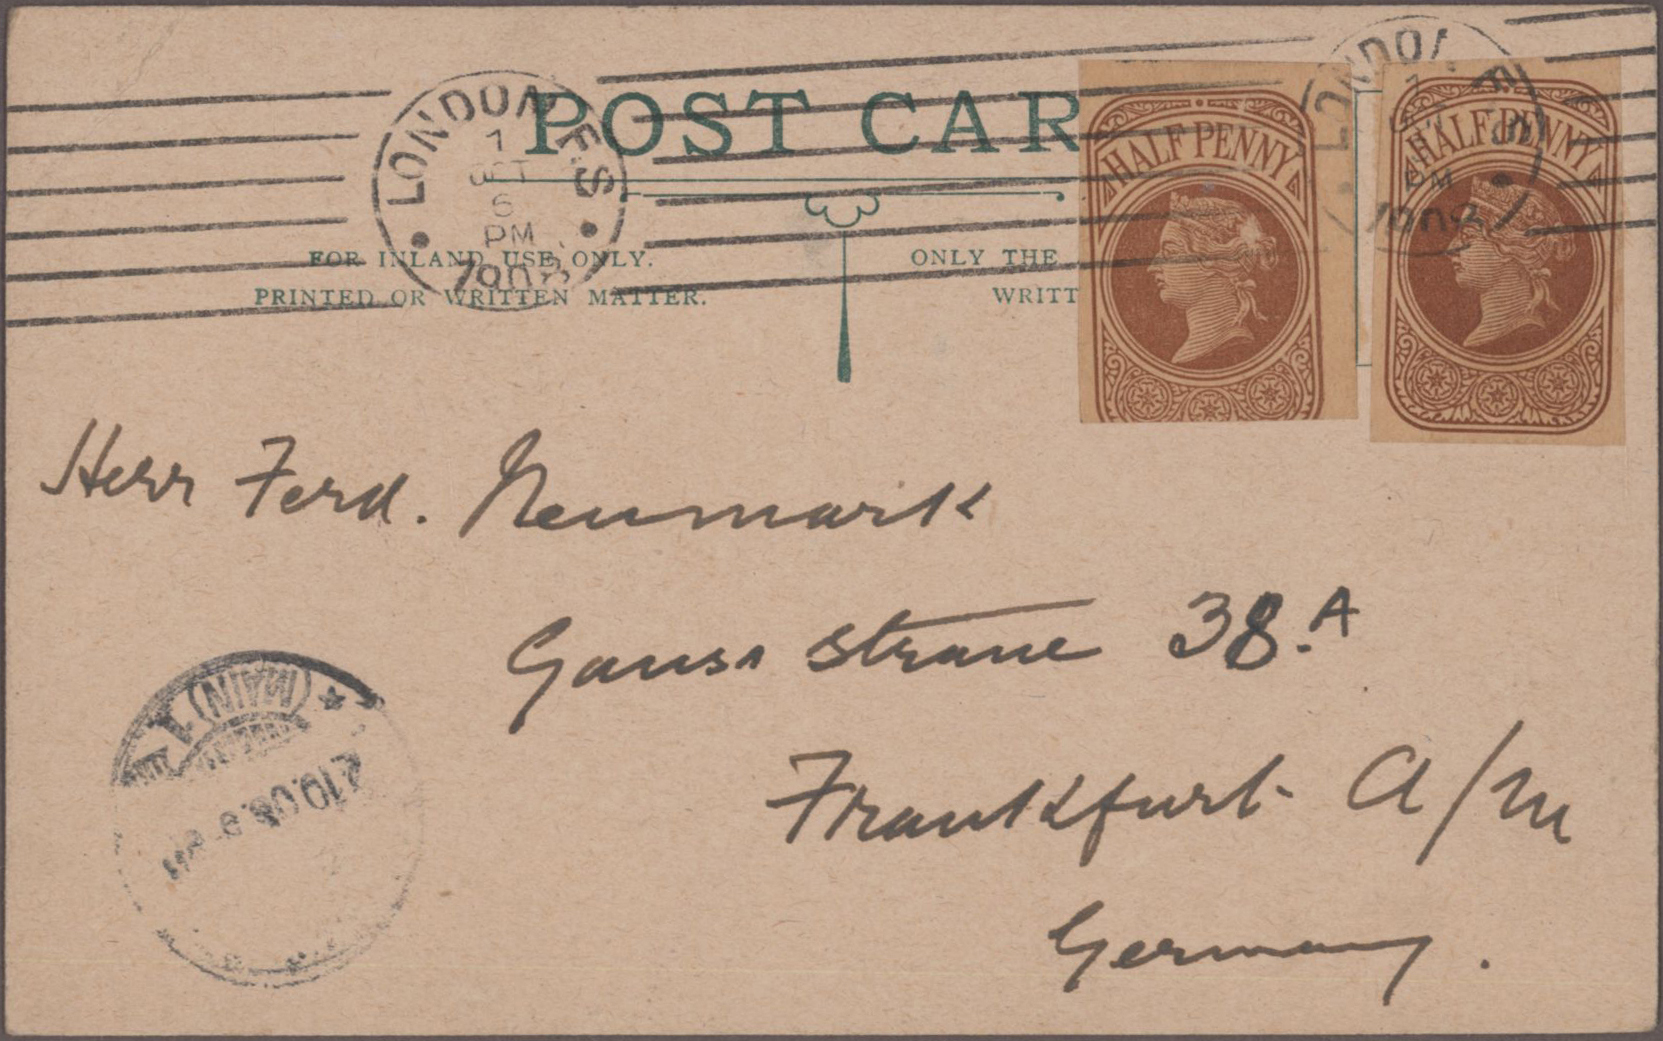 POST CAR
LONDON F.S
1
OCT
6
PM
1908
FOR INLAND USE ONLY.
PRINTED OR WRITTEN MATTER.
ONLY THE
WRITT
HALF PENNY
HALF PENNY
LONDON
1
PM
1908
Herr Ferd. Neumark
Gauss strasse 38.A
Frankfurt a/M
Germany.
(MAIN) 1
2.10.08. 8-9V